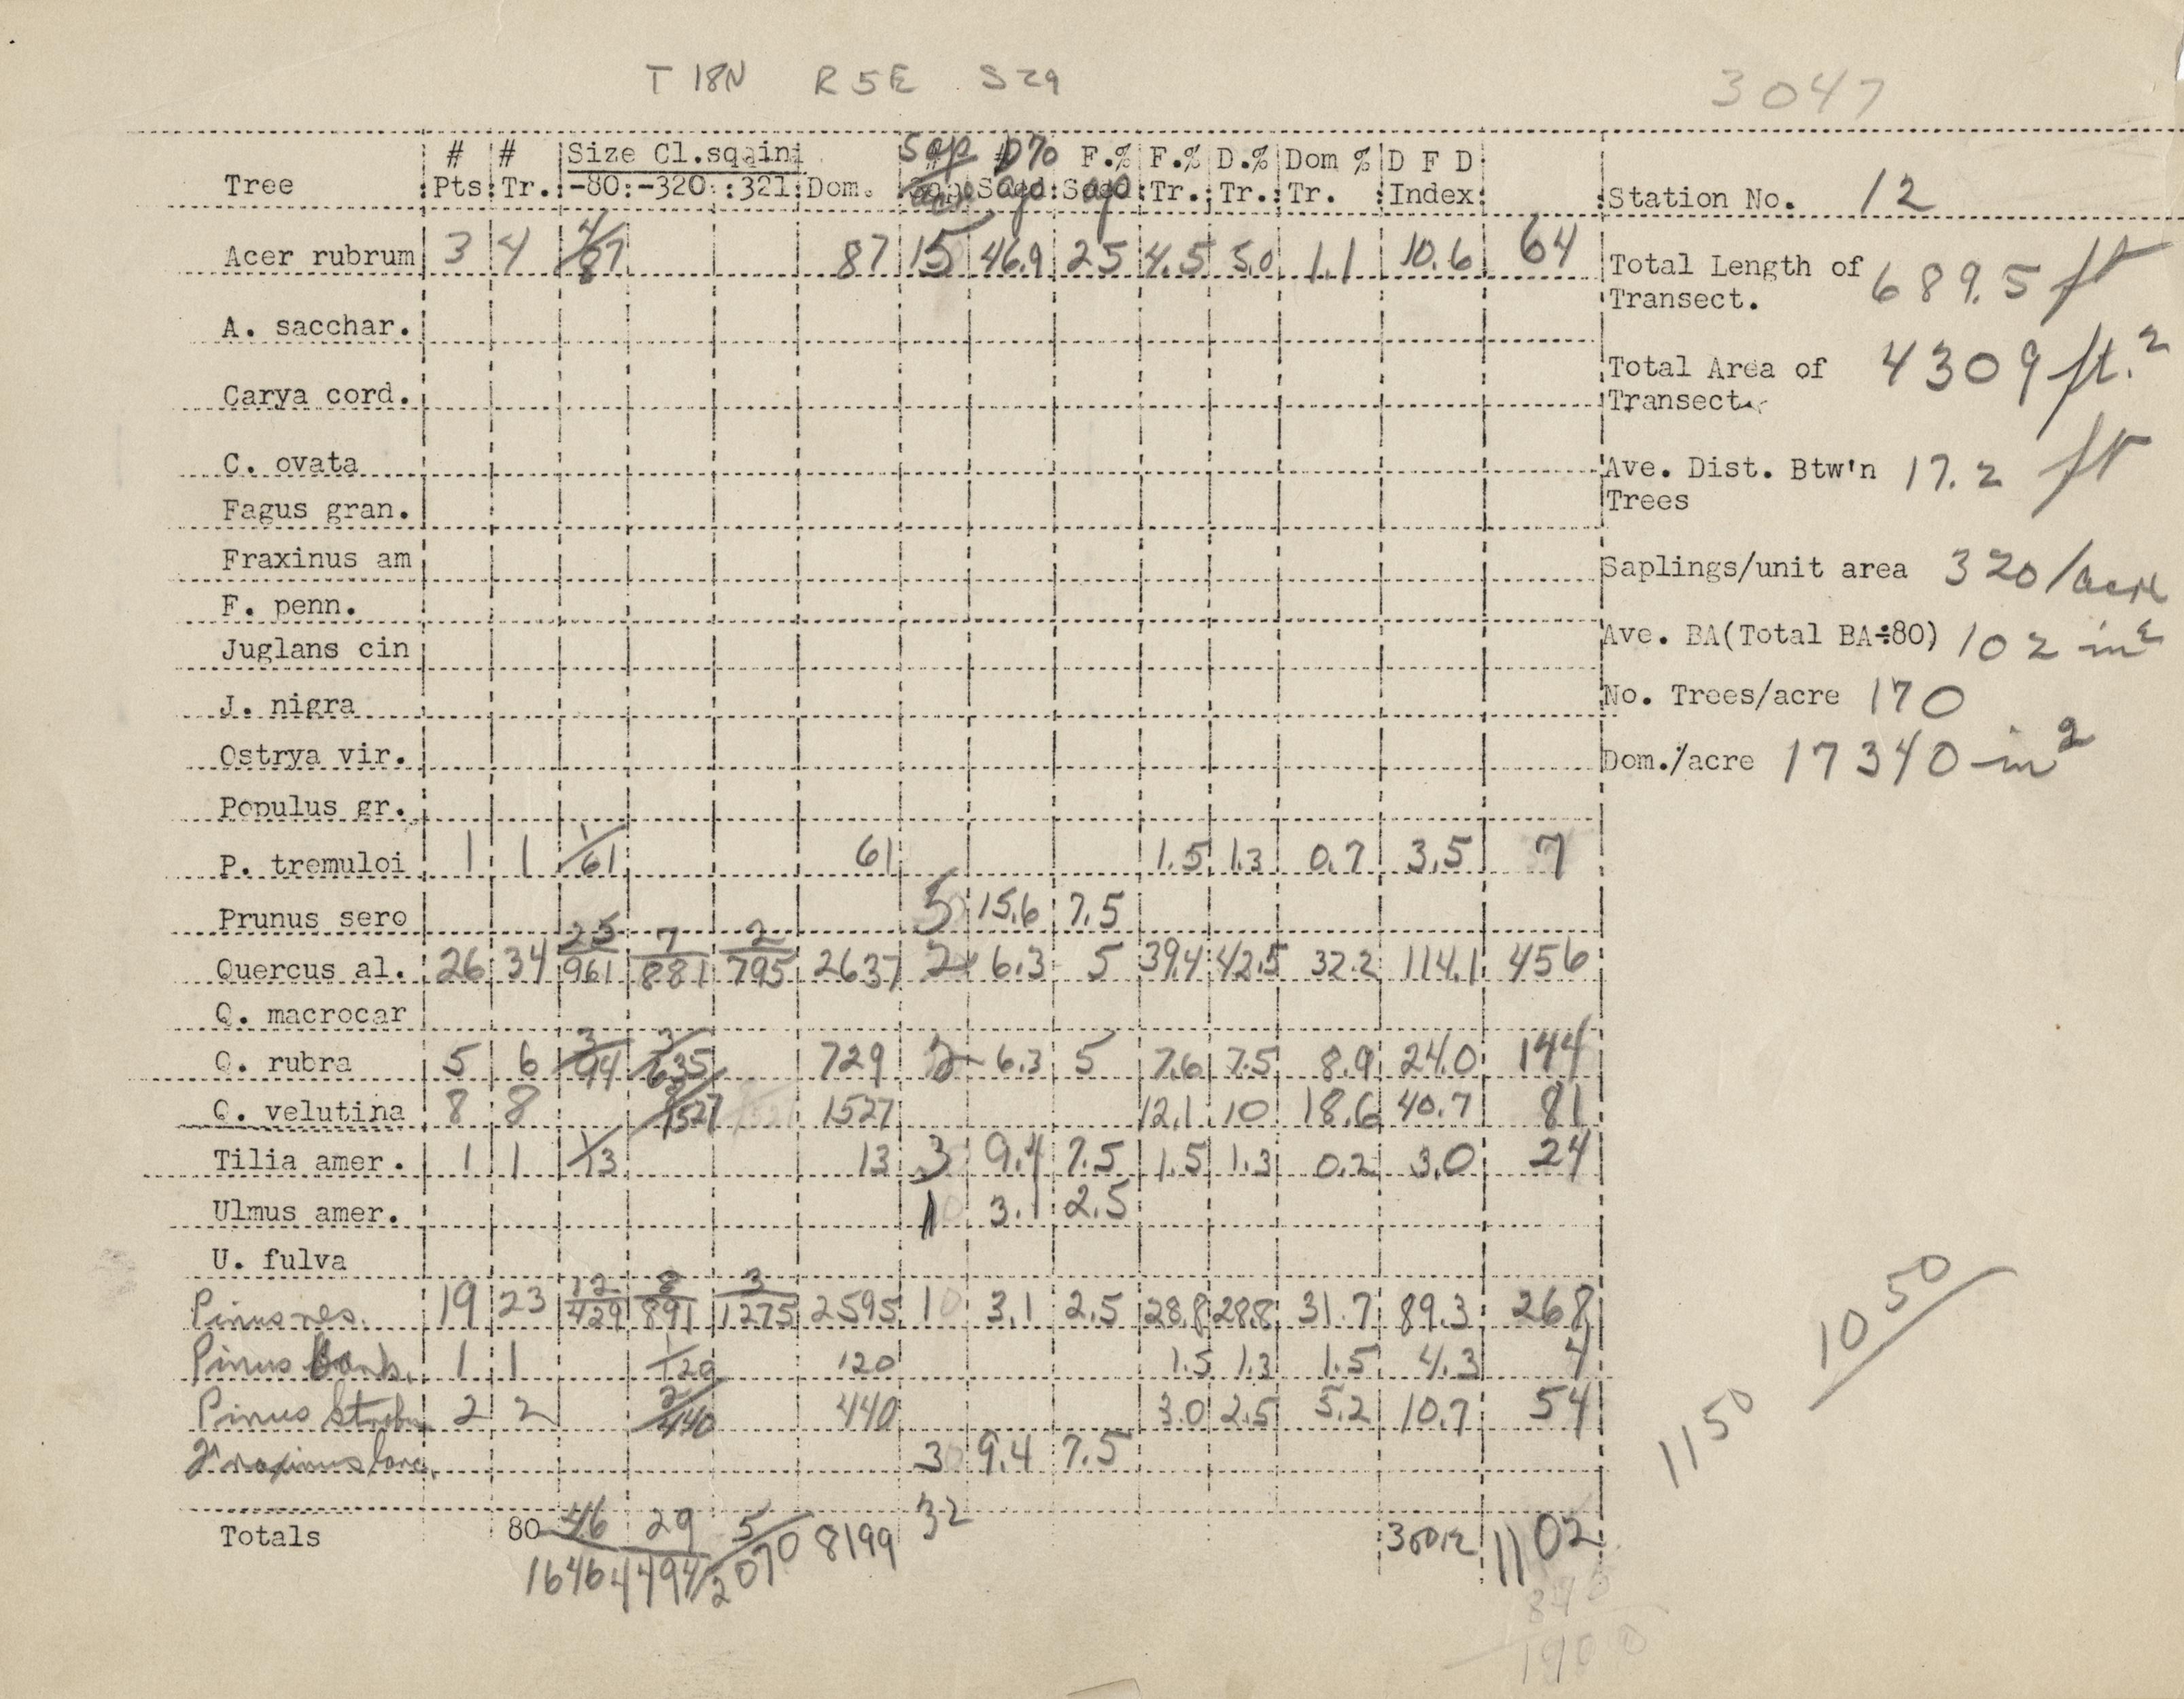 T 18N R5E S 29
3047
# # Size Cl.sqain Sap D% F.% F.% D.% Dom % D F D
Tree Pts Tr. -80 -320 321 Dom. Tr. Tr. Tr. Index Station No. 12
Acer rubrum 3 4 4/87 87 15 46.9 25 4.5 5.0 1.1 10.6 64
Total Length of Transect. 689.5 ft
A. sacchar.
Total Area of Transect. 4309 ft.2
Carya cord.
C. ovata
Ave. Dist. Btw'n Trees 17.2 ft
Fagus gran.
Fraxinus am
Saplings/unit area 320/acre
F. penn.
Juglans cin
Ave. BA(Total BA÷80) 102 in2
J. nigra
No. Trees/acre 170
Ostrya vir.
Dom./acre 17340 in2
Populus gr.
P. tremuloi 1 1 1/61 61 1.5 1.3 0.7 3.5 7
Prunus sero 5 15.6 7.5
Quercus al. 26 34 25/961 7/881 2/795 2637 2 6.3 5 39.4 42.5 32.2 114.1 456
Q. macrocar
Q. rubra 5 6 3/94 3/635 729 2 6.3 5 7.6 7.5 8.9 24.0 144
Q. velutina 8 8 8/1527 1527 12.1 10 18.6 40.7 81
Tilia amer. 1 1 1/13 13 3 9.4 7.5 1.5 1.3 0.2 3.0 24
Ulmus amer. 1 3.1 2.5
U. fulva
Pinus res. 19 23 12/429 8/891 3/1275 2595 1 3.1 2.5 28.8 28.8 31.7 89.3 268
Pinus Bank. 1 1 1/120 120 1.5 1.3 1.5 4.3 4
Pinus Strobu 2 2 2/440 440 3.0 2.5 5.2 10.7 54
3 9.4 7.5
Totals 80 46/1646 29/4494 5/2070 8199 32 300.2 1102
1050
1150